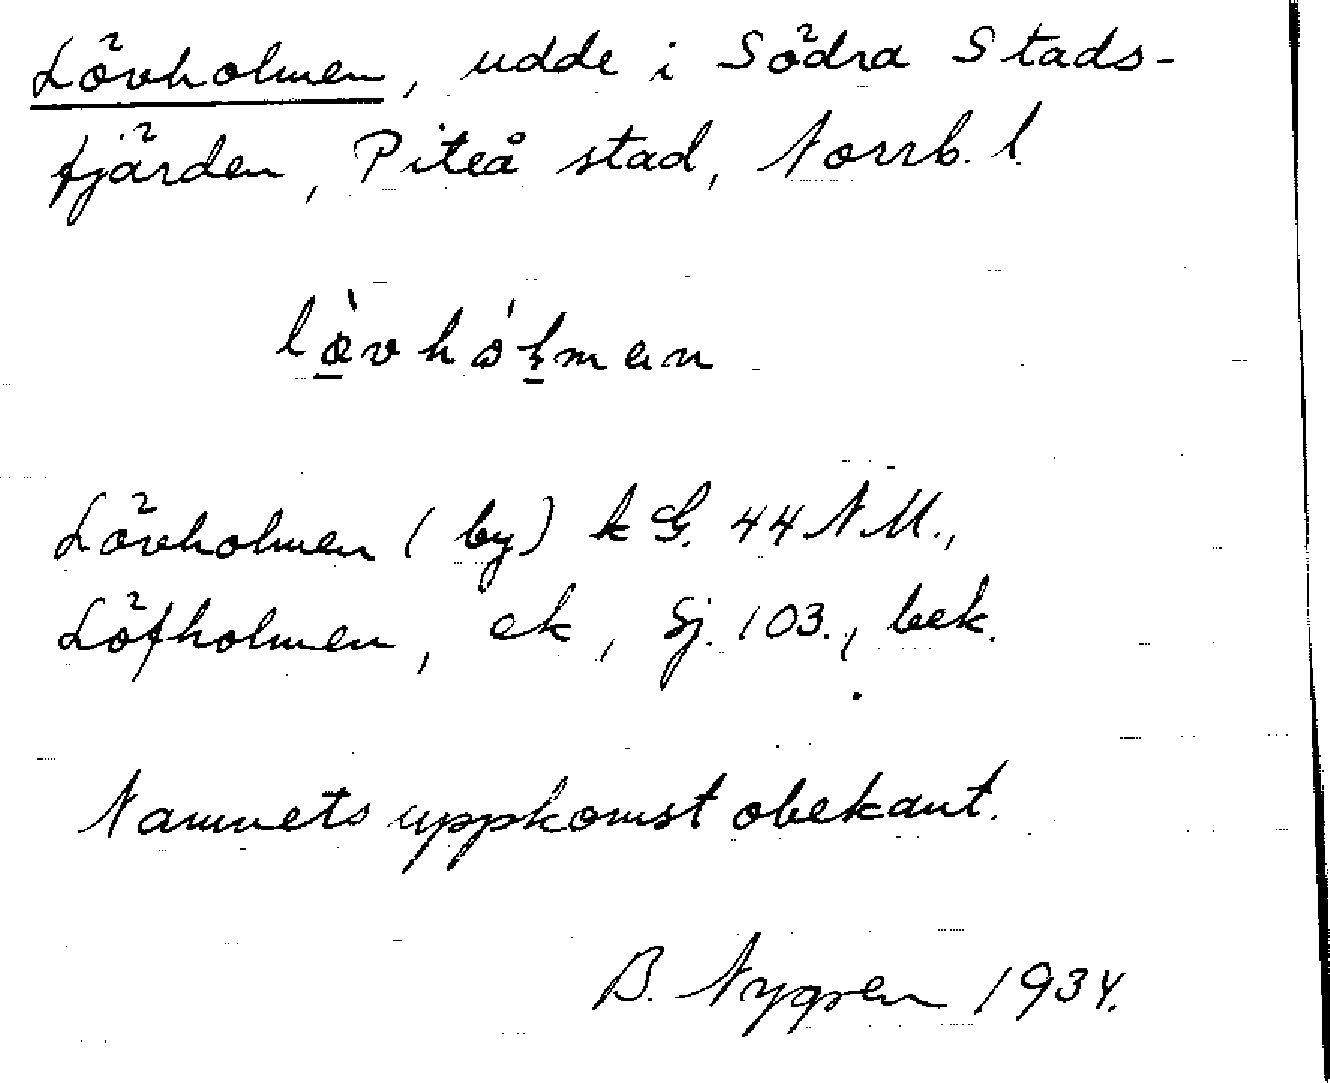 Lövholmen, udde i Södra Stads-
fjärden, Piteå stad, Norrb. l.
lœ̱̀vhólman
Lövholmen (by) k G. 44 NM.,
Löfholmen, ek, Sj. 103., bek.
Namnets uppkomst obekant.
B. Nygren 1934.